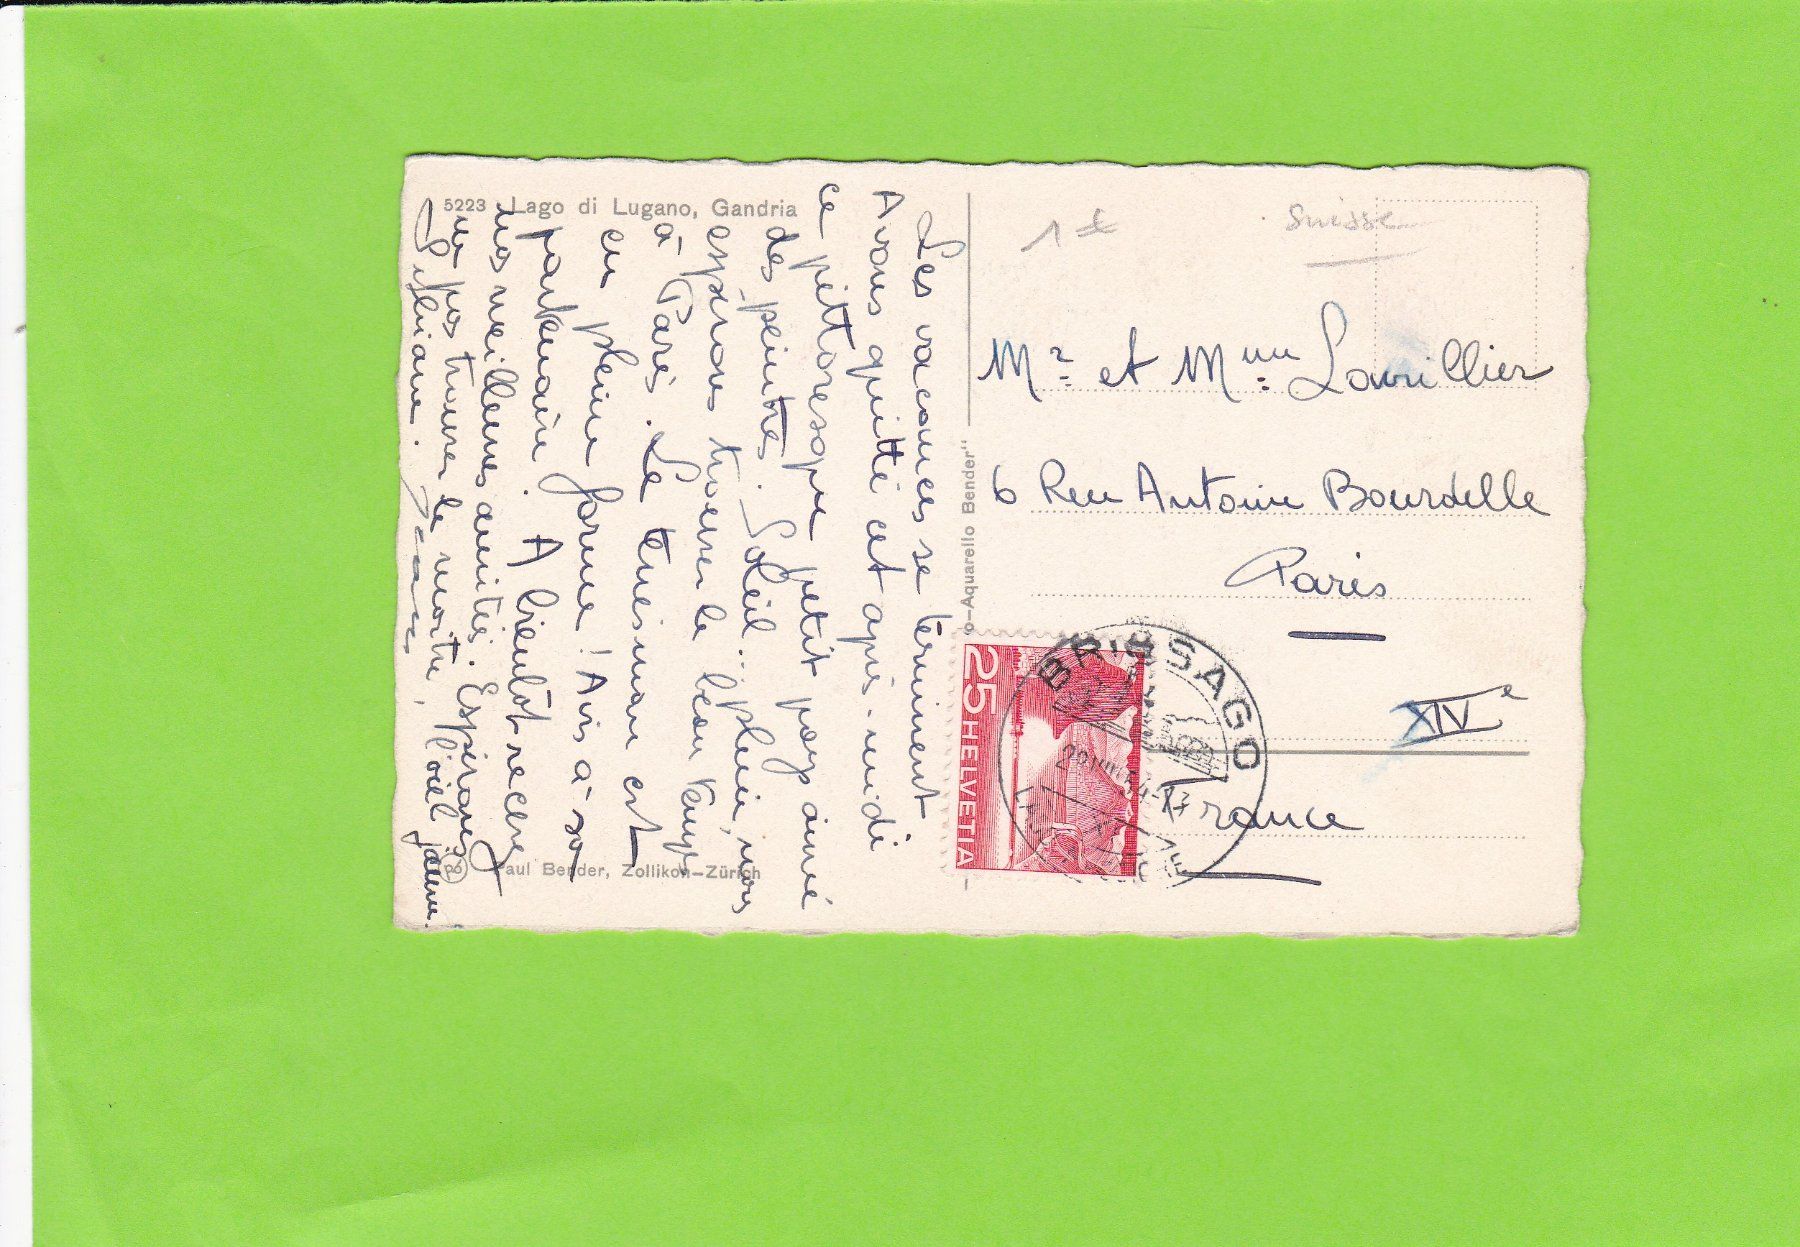 5223 Lago di Lugano, Gandria
Les vacances se terminent
Avons quitté cet après-midi
ce pittoresque petit pays aimé
des peintres. Soleil... pluie, nous
espérons trouver le beau temps
à Paris. Le tuésiman est
en pleine forme! Avis à so
partenaire. A bientôt recevez
nos meilleures amitiés. Espérons
ne pas trouver le moitre, l'oeil jaune.
Liliane.
Paul Bender, Zollikon-Zürich
o-Aquarello Bender"
1 €
Suisse
Mr et Mme Louvillier
6 Rue Antoine Bourdelle
Paris
XIVe
France
25 HELVETIA
BRISSAGO